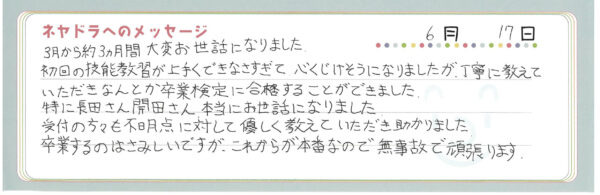 ネヤドラへのメッセージ
6月 17日
3月から約3ヵ月間 大変お世話になりました
初回の技能教習が上手くできなさすぎて 心くじけそうになりましたが、丁寧に教えて
いただきなんとか卒業検定に合格することができました。
特に長田さん 開田さん 本当にお世話になりました。
受付の方々も不明点に対して優しく教えていただき助かりました。
卒業するのはさみしいですが、これからが本番なので 無事故で頑張ります。